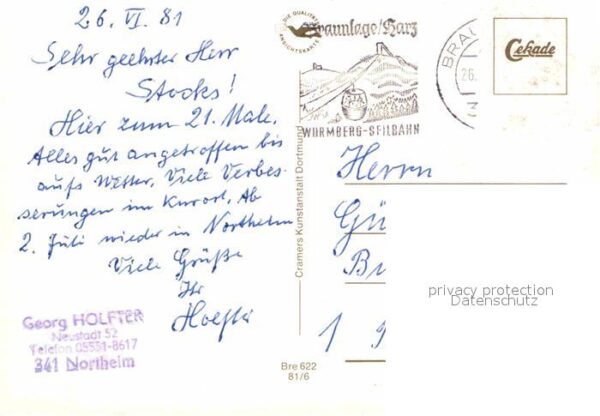 26. VI. 81
Sehr geehrter Herr
Stocks!
Hier zum 21. Male.
Alles gut angetroffen bis
aufs Wetter. Viele Verbes-
serungen im Kurort. Ab
2. Juli wieder in Northeim
Viele Grüße
Ihr
Holfter
Georg HOLFTER
Neustadt 52
Telefon 05551-8617
341 Northeim
DIE QUALITÄTS
ANSICHTSKARTE
Braunlage/Harz
WURMBERG-SEILBAHN
BRAU
26.
3
Cekade
Cramers Kunstanstalt Dortmund
Herrn
Gü
B
1
privacy protection
Datenschutz
Bre 622
81/6